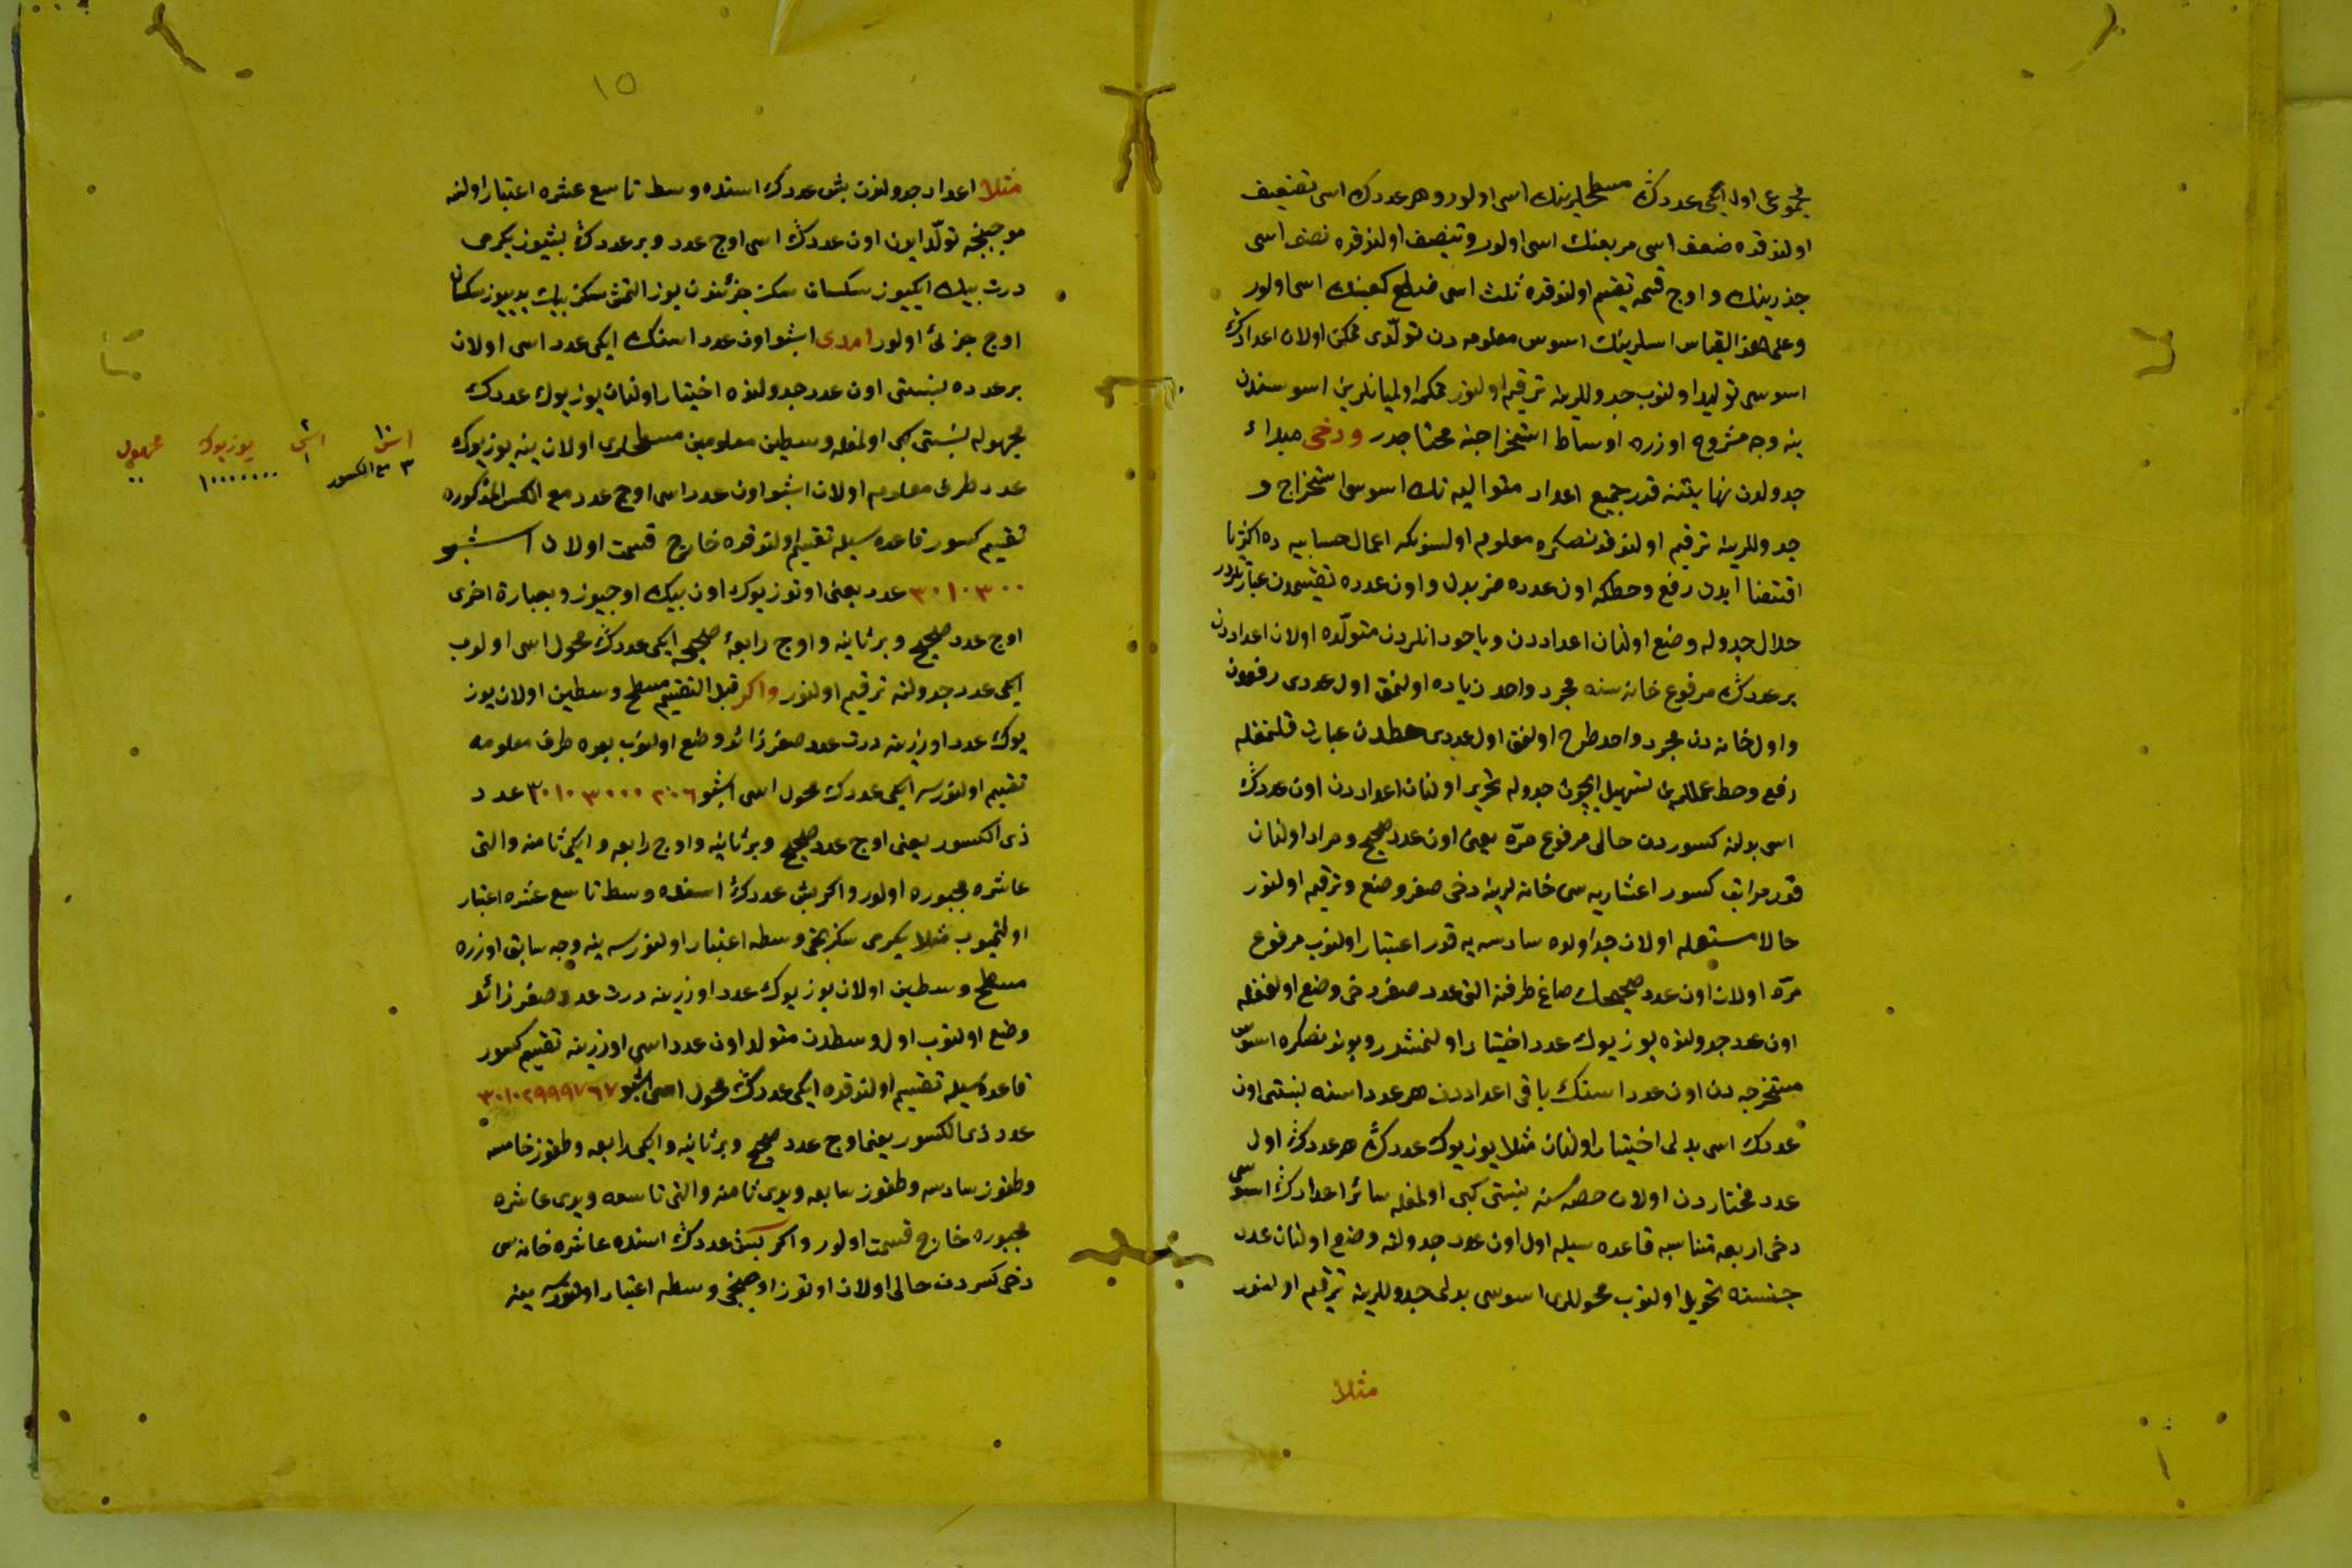 مجموعی اول ایکی عددڭ مسطحلرینك اسی اولور و هر عددك اسی تضعیف
اولندقده ضعف اسی مربعنك اسی اولور و تنصیف اولندقده نصف اسی
جذرینك و اوج قسمه تقسیم اولندقده ثلث اسی ضلع كعبنك اسی اولور
و علی هذا القیاس اسلرینك اسوس معلومه دن تولّدی ممكن اولان اعدادڭ
اسوسی تولید اولنوب جدوللرینه ترقیم اولنور ممكن اولمیانلرین اسوسندن
ینه وجه مشروح اوزره اوساط استخراجنه محتاجدر و دخی مبداء
جدولدن نهایتنه قدر جمیع اعداد متوالیه نك اسوسی استخراج و
جدوللرینه ترقیم اولندقدنصكره معلوم اولسونكه اعمال حسابیه ده اكثریا
اقتضا ایدن رفع و حطكه اون عدده ضربدن و اون عدده تقسیمدن عبارتلردر
خلال جدوله وضع اولنان اعداددن و یاخود انلردن متولّده اولان اعداددن
بر عددڭ مرفوع خانه سنه مجرد واحد زیاده اولنمق اول عددی رفعدن
و اول خانه دن مجرد واحد طرح اولنمق اول عددی حطدن عبارت قلنمغله
رفع و حط عمللرین تسهیل ایچون جدوله تحریر اولنان اعداددن اون عددڭ
اسی بدلنه كسوردن خالی مرفوع مرّه یعنی اون عدد صحیح و مراد اولنان
قدر مراتب كسور اعشاریه سی خانه لرینه دخی صفر وضع و ترقیم اولنور
حالا مستعمله اولان جداولده سادسه یه قدر اعتبار اولنوب مرفوع
مرّه اولان اون عدد صحیحك صاغ طرفنه التی عدد صفر دخی وضع اولنمغله
اون عدد جدولنده یوز یوك عدد اختیار اولنمشدر و بوندنصكره اسوس
مستخرجه دن اون عدد اسنك باقی اعداددن هر عدد اسنه نسبتی اون
عددك اسی بدلی اختیار اولنان مثلا یوز یوك عددڭ هر عددڭ اول
عدد مختاردن اولان حصه سنه نسبتی كبی اولمغله سائر اعدادڭ اسوسی
دخی اربعه متناسبه قاعده سیله اول اون عدد جدولنه وضع اولنان عدد
جنسنه تحویل اولنوب محوللری اسوسی بدلی جدوللرینه ترقیم اولنور
مثلا
١٥
مثلا اعداد جدولنڭ بش عددك اسنده وسط تاسع عشره اعتبار اولنه
موجبنجه تولّد ایدن اون عددڭ اسی اوج عدد و بر عددڭ بشیوز یكرمی
درت بیك ایكیوز سكسان سكز جزئندن یوز التمش سكز بیك یدییوز سكسان
اوج جزئی اولور امدی اشبو اون عدد اسنك ایكی عدد اسی اولان
بر عدده نسبتی اون عدد جدولنده اختیار اولنان یوز یوك عددك
مجهوله نسبتی كبی اولمغله وسطین معلومین مسطحلری اولان ینه یوز یوك
عدد طرف معلوم اولان اشبو اون عدد اسی اوج عدد مع الكسر المذكوره
تقسیم كسور قاعده سیله تقسیم اولندقده خارج قسمت اولان اشبو
٣٠١٠٣٠٠ عدد یعنی اوتوز یوك اون بیك اوجیوز و بعبارة اخری
اوج عدد صحیح و بر ثانیه و اوج رابعه صحیحه ایكی عددڭ محول اسی اولوب
ایكی عدد جدولنه ترقیم اولنور و اكر قبل التقسیم مسطح وسطین اولان یوز
یوك عدد اوزرینه درت عدد صفر زائد وضع اولنوب بعده طرف معلومه
تقسیم اولنورسه ایكی عددك محول اسی اشبو ٣٠١٠٣٠٠٠٢٠٦ عدد
ذی الكسور یعنی اوج عدد صحیح و بر ثانیه و اوج رابعه و ایكی ثامنه و التی
عاشره مجبوره اولور و اكر بش عددك اسنده وسط تاسع عشره اعتبار
اولنمیوب مثلا یكرمی سكزنجی وسطه اعتبار اولنورسه ینه وجه سابق اوزره
مسطح وسطین اولان یوز یوك عدد اوزرینه درت عدد صفر زائد
وضع اولنوب اول وسطدن متولد اون عدد اسی اوزرینه تقسیم كسور
قاعده سیله تقسیم اولندقده ایكی عددڭ محول اسی اشبو ٣٠١٠٢٩٩٩٧٦٧
عدد ذی الكسور یعنی اوج عدد صحیح و بر ثانیه و ایكی رابعه و طقوز خامسه
و طقوز سادسه و طقوز سابعه و یدی ثامنه و التی تاسعه و یدی عاشره
مجبوره خارج قسمت اولور و اكر بش عددڭ اسنده عاشره خانه سی
دخی كسردن خالی اولان اوتوز اوجنجی وسطه اعتبار اولنورسه ینه
اس ١٠ اس ٢ یوز یوك مجهول
٣ مع الكسور ١ ١٠٠٠٠٠٠٠ ٠٠